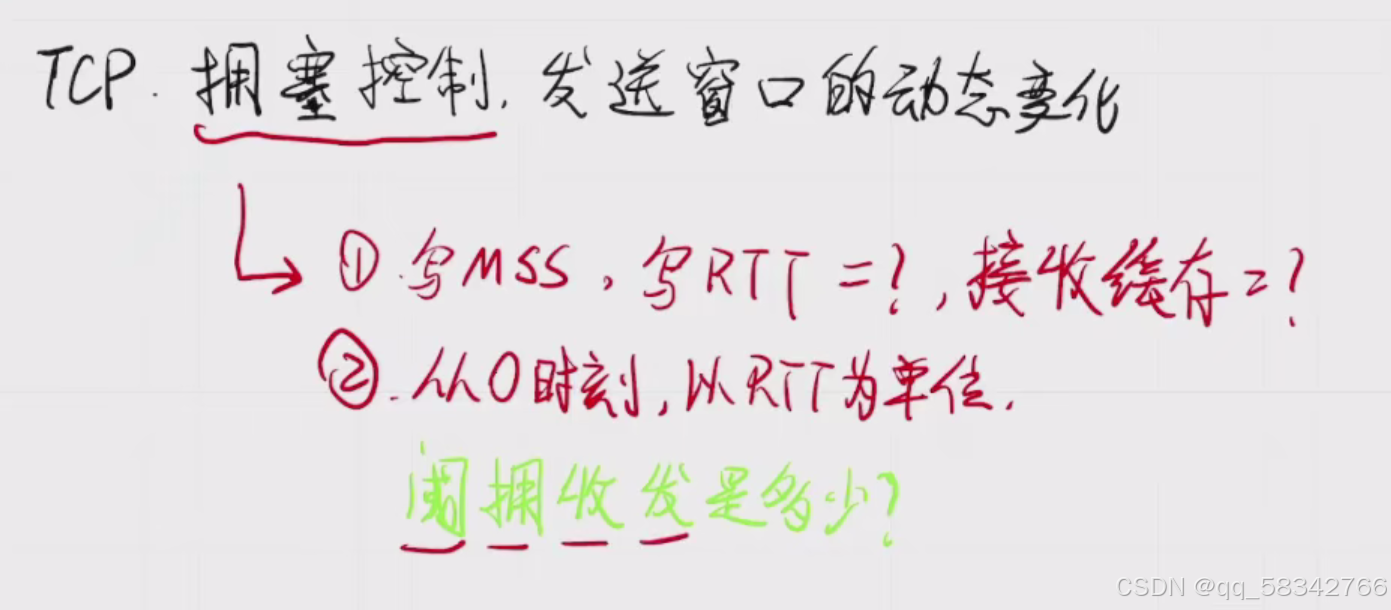 TCP. 拥塞控制, 发送窗口的动态变化
①. 写MSS, 写RTT=?, 接收缓存=?
②. 从0时刻, 以RTT为单位.
阈拥收发是多少?
CSDN @qq_58342766